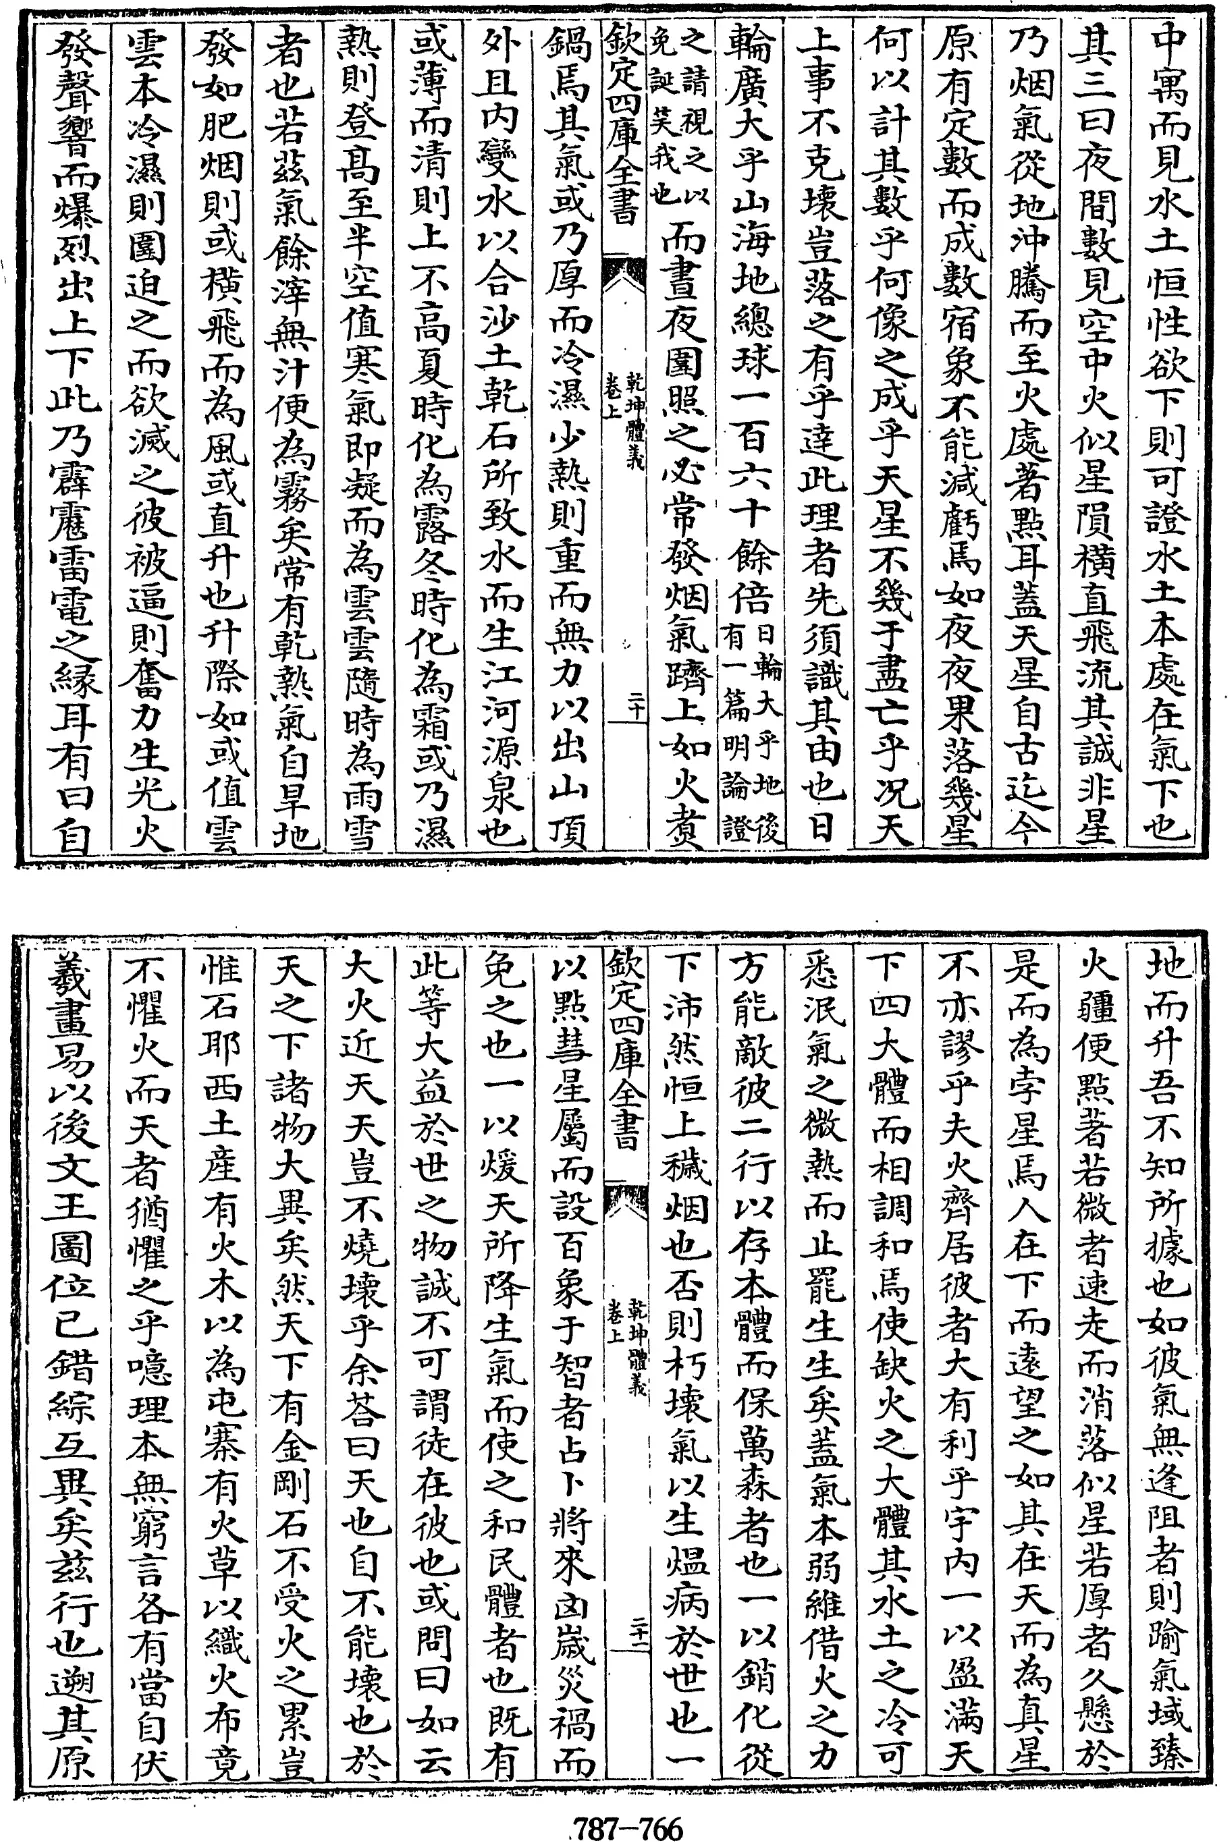 中寓而見水土恒性欲下則可證水土本處在氣下也
其三曰夜間數見空中火似星隕橫直飛流其誠非星
乃烟氣從地沖騰而至火處著點耳蓋天星自古迄今
原有定數而成數宿象不能減虧焉如夜夜果落幾星
何以計其數乎何像之成乎天星不幾于盡亡乎况天
上事不克壞豈落之有乎達此理者先須識其由也日
輪廣大乎山海地總球一百六十餘倍日輪大乎地後有一篇明論證
之請視之以免誕笑我也而晝夜圍照之必常發烟氣躋上如火煑
欽定四庫全書
乾坤體義
卷上
二十
鍋焉其氣或乃厚而冷濕少熱則重而無力以出山頂
外且内變水以合沙土乾石所致水而生江河源泉也
或薄而清則上不高夏時化為露冬時化為霜或乃濕
熱則登高至半空值寒氣即凝而為雲雲隨時為雨雪
者也若兹氣餘滓無汁便為霧矣常有乾熱氣自旱地
發如肥烟則或橫飛而為風或直升也升際如或值雲
雲本冷濕則圍迫之而欲滅之彼被逼則奮力生光火
發聲響而爆烈出上下此乃霹靂雷電之緣耳有曰自
地而升吾不知所據也如彼氣無逢阻者則踰氣域臻
火疆便點著若微者速走而消落似星若厚者久懸於
是而為孛星焉人在下而遠望之如其在天而為真星
不亦謬乎夫火齊居彼者大有利乎宇内一以盈滿天
下四大體而相調和焉使缺火之大體其水土之冷可
悉泯氣之微熱而止罷生生矣蓋氣本弱維借火之力
方能敵彼二行以存本體而保萬森者也一以銷化從
下沛然恒上穢烟也否則朽壞氣以生煴病於世也一
欽定四庫全書
乾坤體義
卷上
二十一
以點彗星屬而設百象于智者占卜將來凶嵗災禍而
免之也一以煖天所降生氣而使之和民體者也既有
此等大益於世之物誠不可謂徒在彼也或問曰如云
大火近天天豈不燒壞乎余荅曰天也自不能壞也於
天之下諸物大異矣然天下有金剛石不受火之累豈
惟石耶西土産有火木以為屯寨有火草以織火布竟
不懼火而天者猶懼之乎噫理本無窮言各有當自伏
羲畫易以後文王圖位已錯綜互異矣兹行也遡其原
787-766